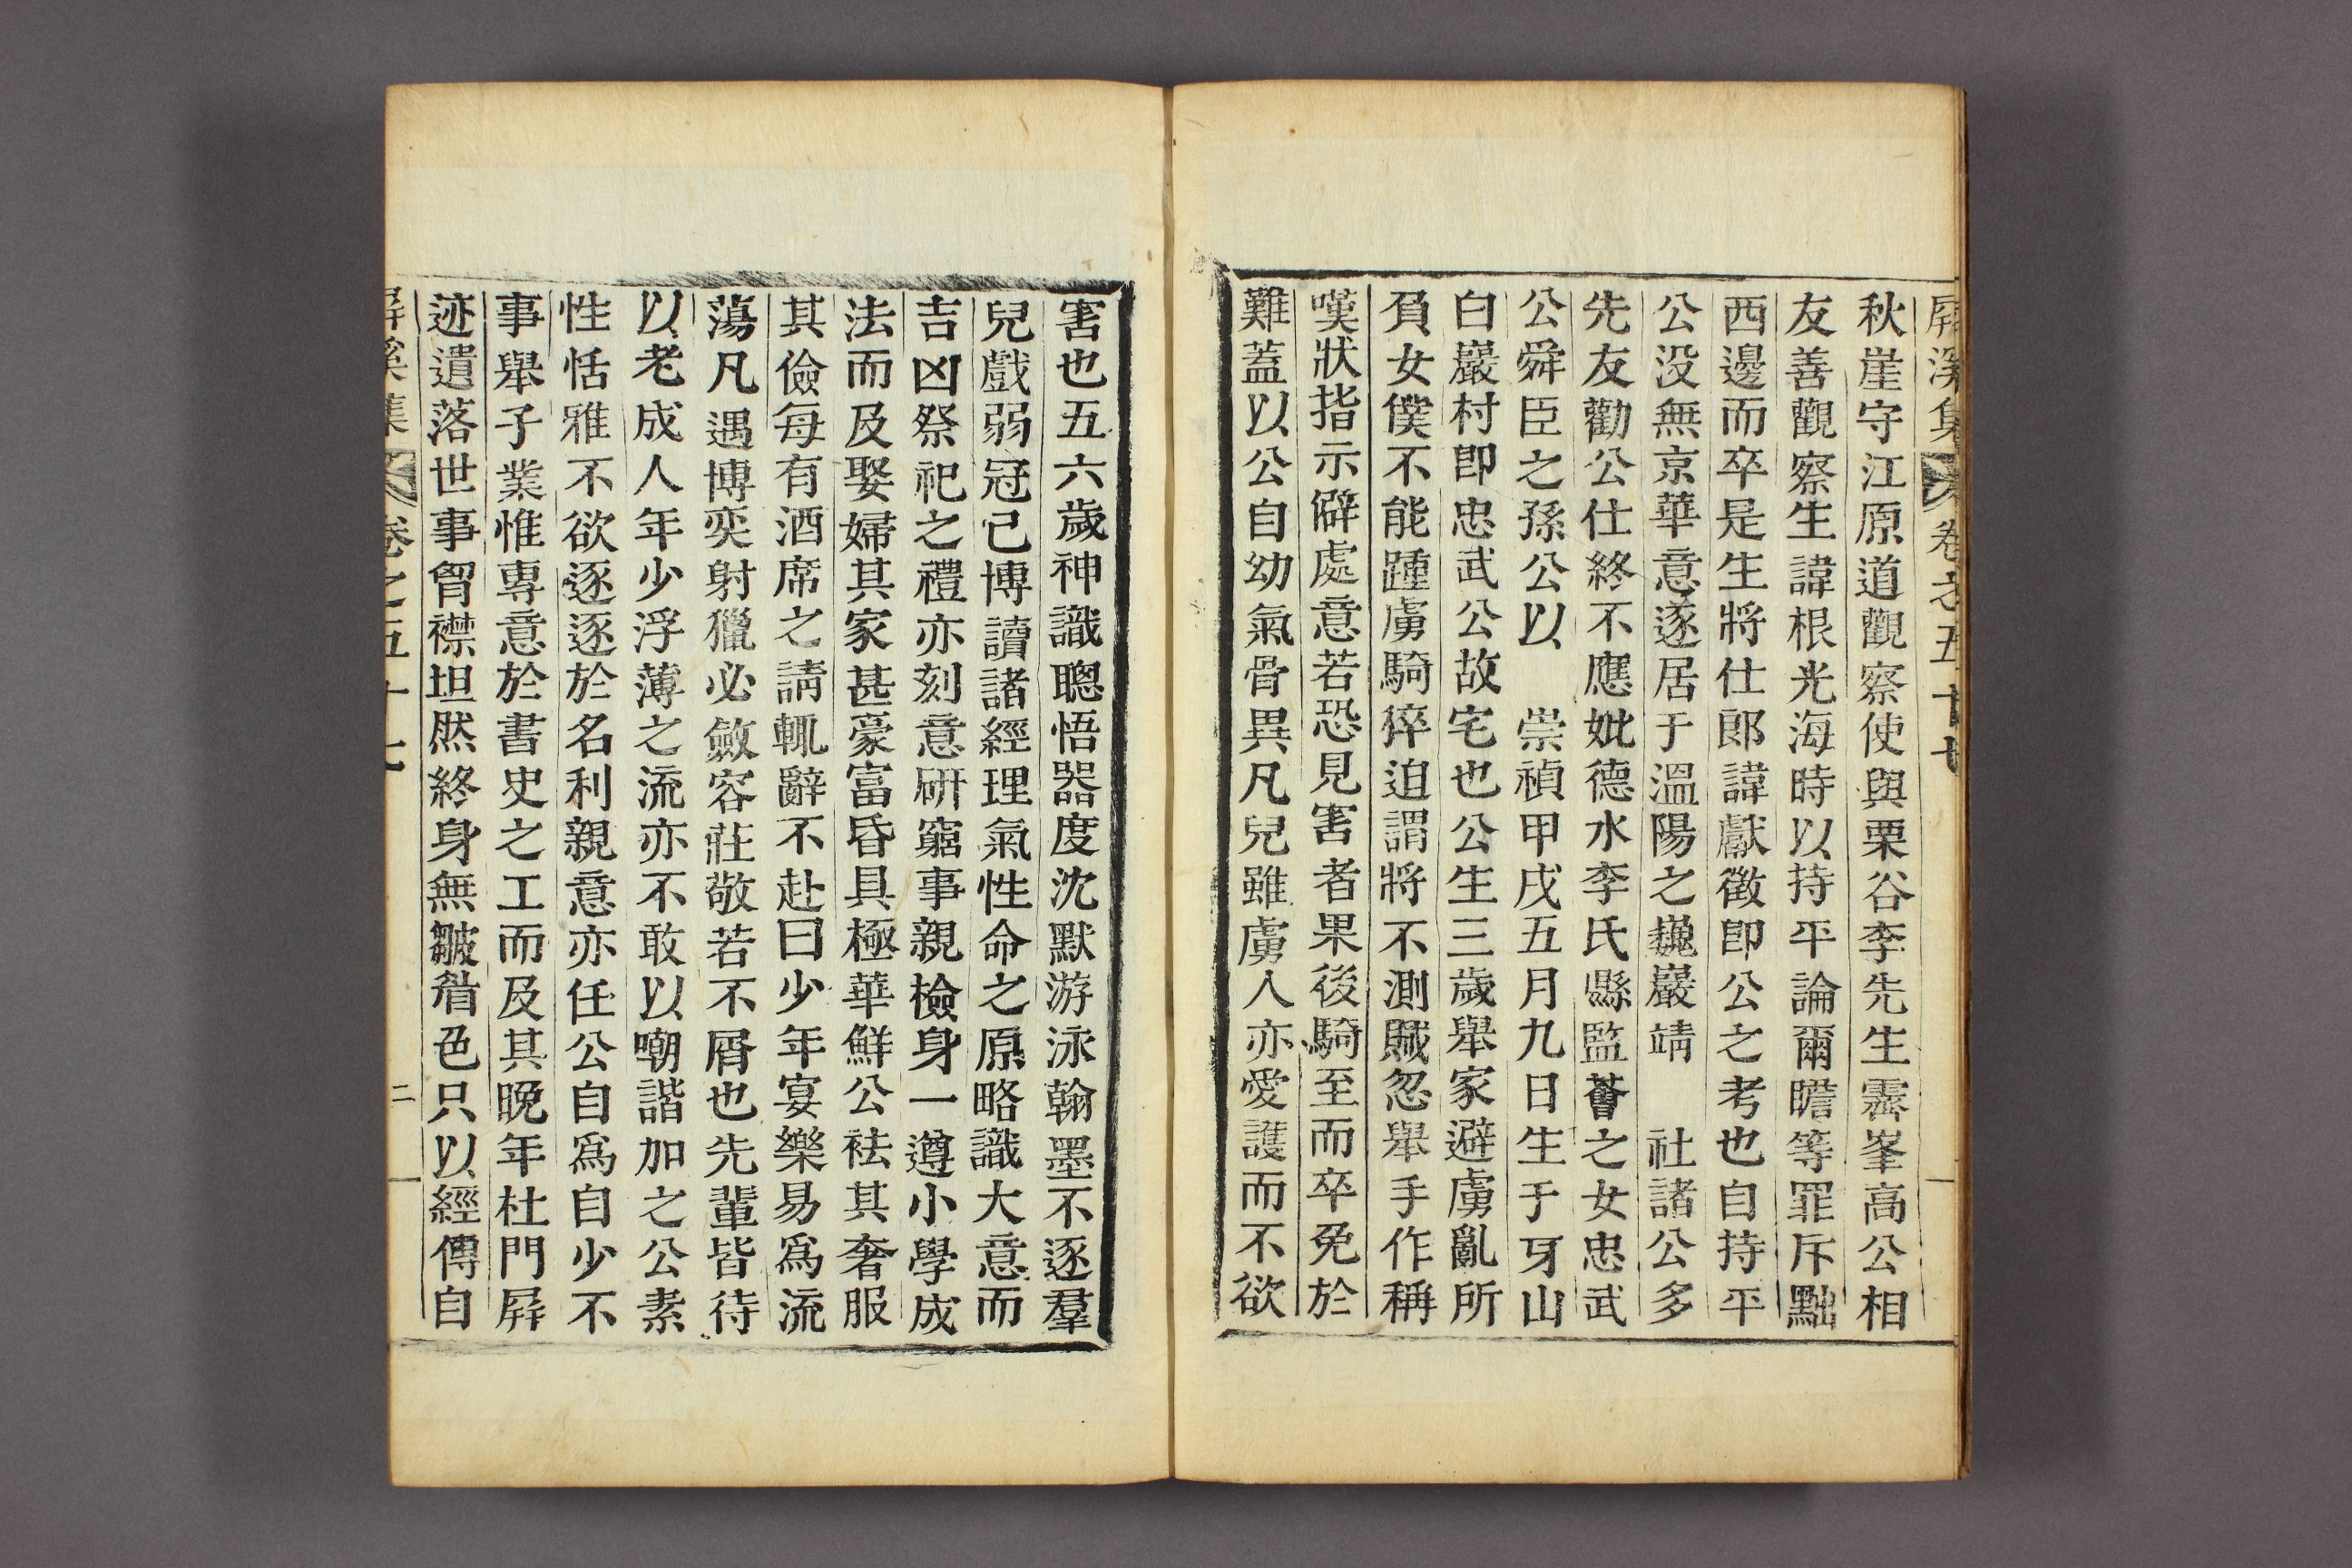 屛溪集 卷之五十七
秋崖守江原道觀察使與栗谷李先生霽峯高公相
友善觀察生諱根光海時以持平論爾瞻等罪斥黜
西邊而卒是生將仕郎諱獻徵卽公之考也自持平
公没無京華意遂居于溫陽之巍巖靖 社諸公多
先友勸公仕終不應妣德水李氏縣監薈之女忠武
公舜臣之孫公以 崇禎甲戌五月九日生于牙山
白巖村卽忠武公故宅也公生三歲舉家避虜亂所
負女僕不能踵虜騎猝迫謂將不測賊忽舉手作稱
嘆狀指示僻處意若恐見害者果後騎至而卒免於
難蓋以公自幼氣骨異凡兒雖虜人亦愛護而不欲
害也五六歲神識聰悟器度沈默游泳翰墨不逐羣
兒戲弱冠已博讀諸經理氣性命之原略識大意而
吉凶祭祀之禮亦刻意硏窮事親檢身一遵小學成
法而及娶婦其家甚豪富昏具極華鮮公袪其奢服
其儉每有酒席之請輒辭不赴曰少年宴樂易爲流
蕩凡遇博奕射獵必斂容莊敬若不屑也先輩皆待
以老成人年少浮薄之流亦不敢以嘲諧加之公素
性恬雅不欲逐逐於名利親意亦任公自爲自少不
事舉子業惟專意於書史之工而及其晚年杜門屛
迹遺落世事胷襟坦然終身無皺眉色只以經傳自
屛溪集 卷之五十七 二